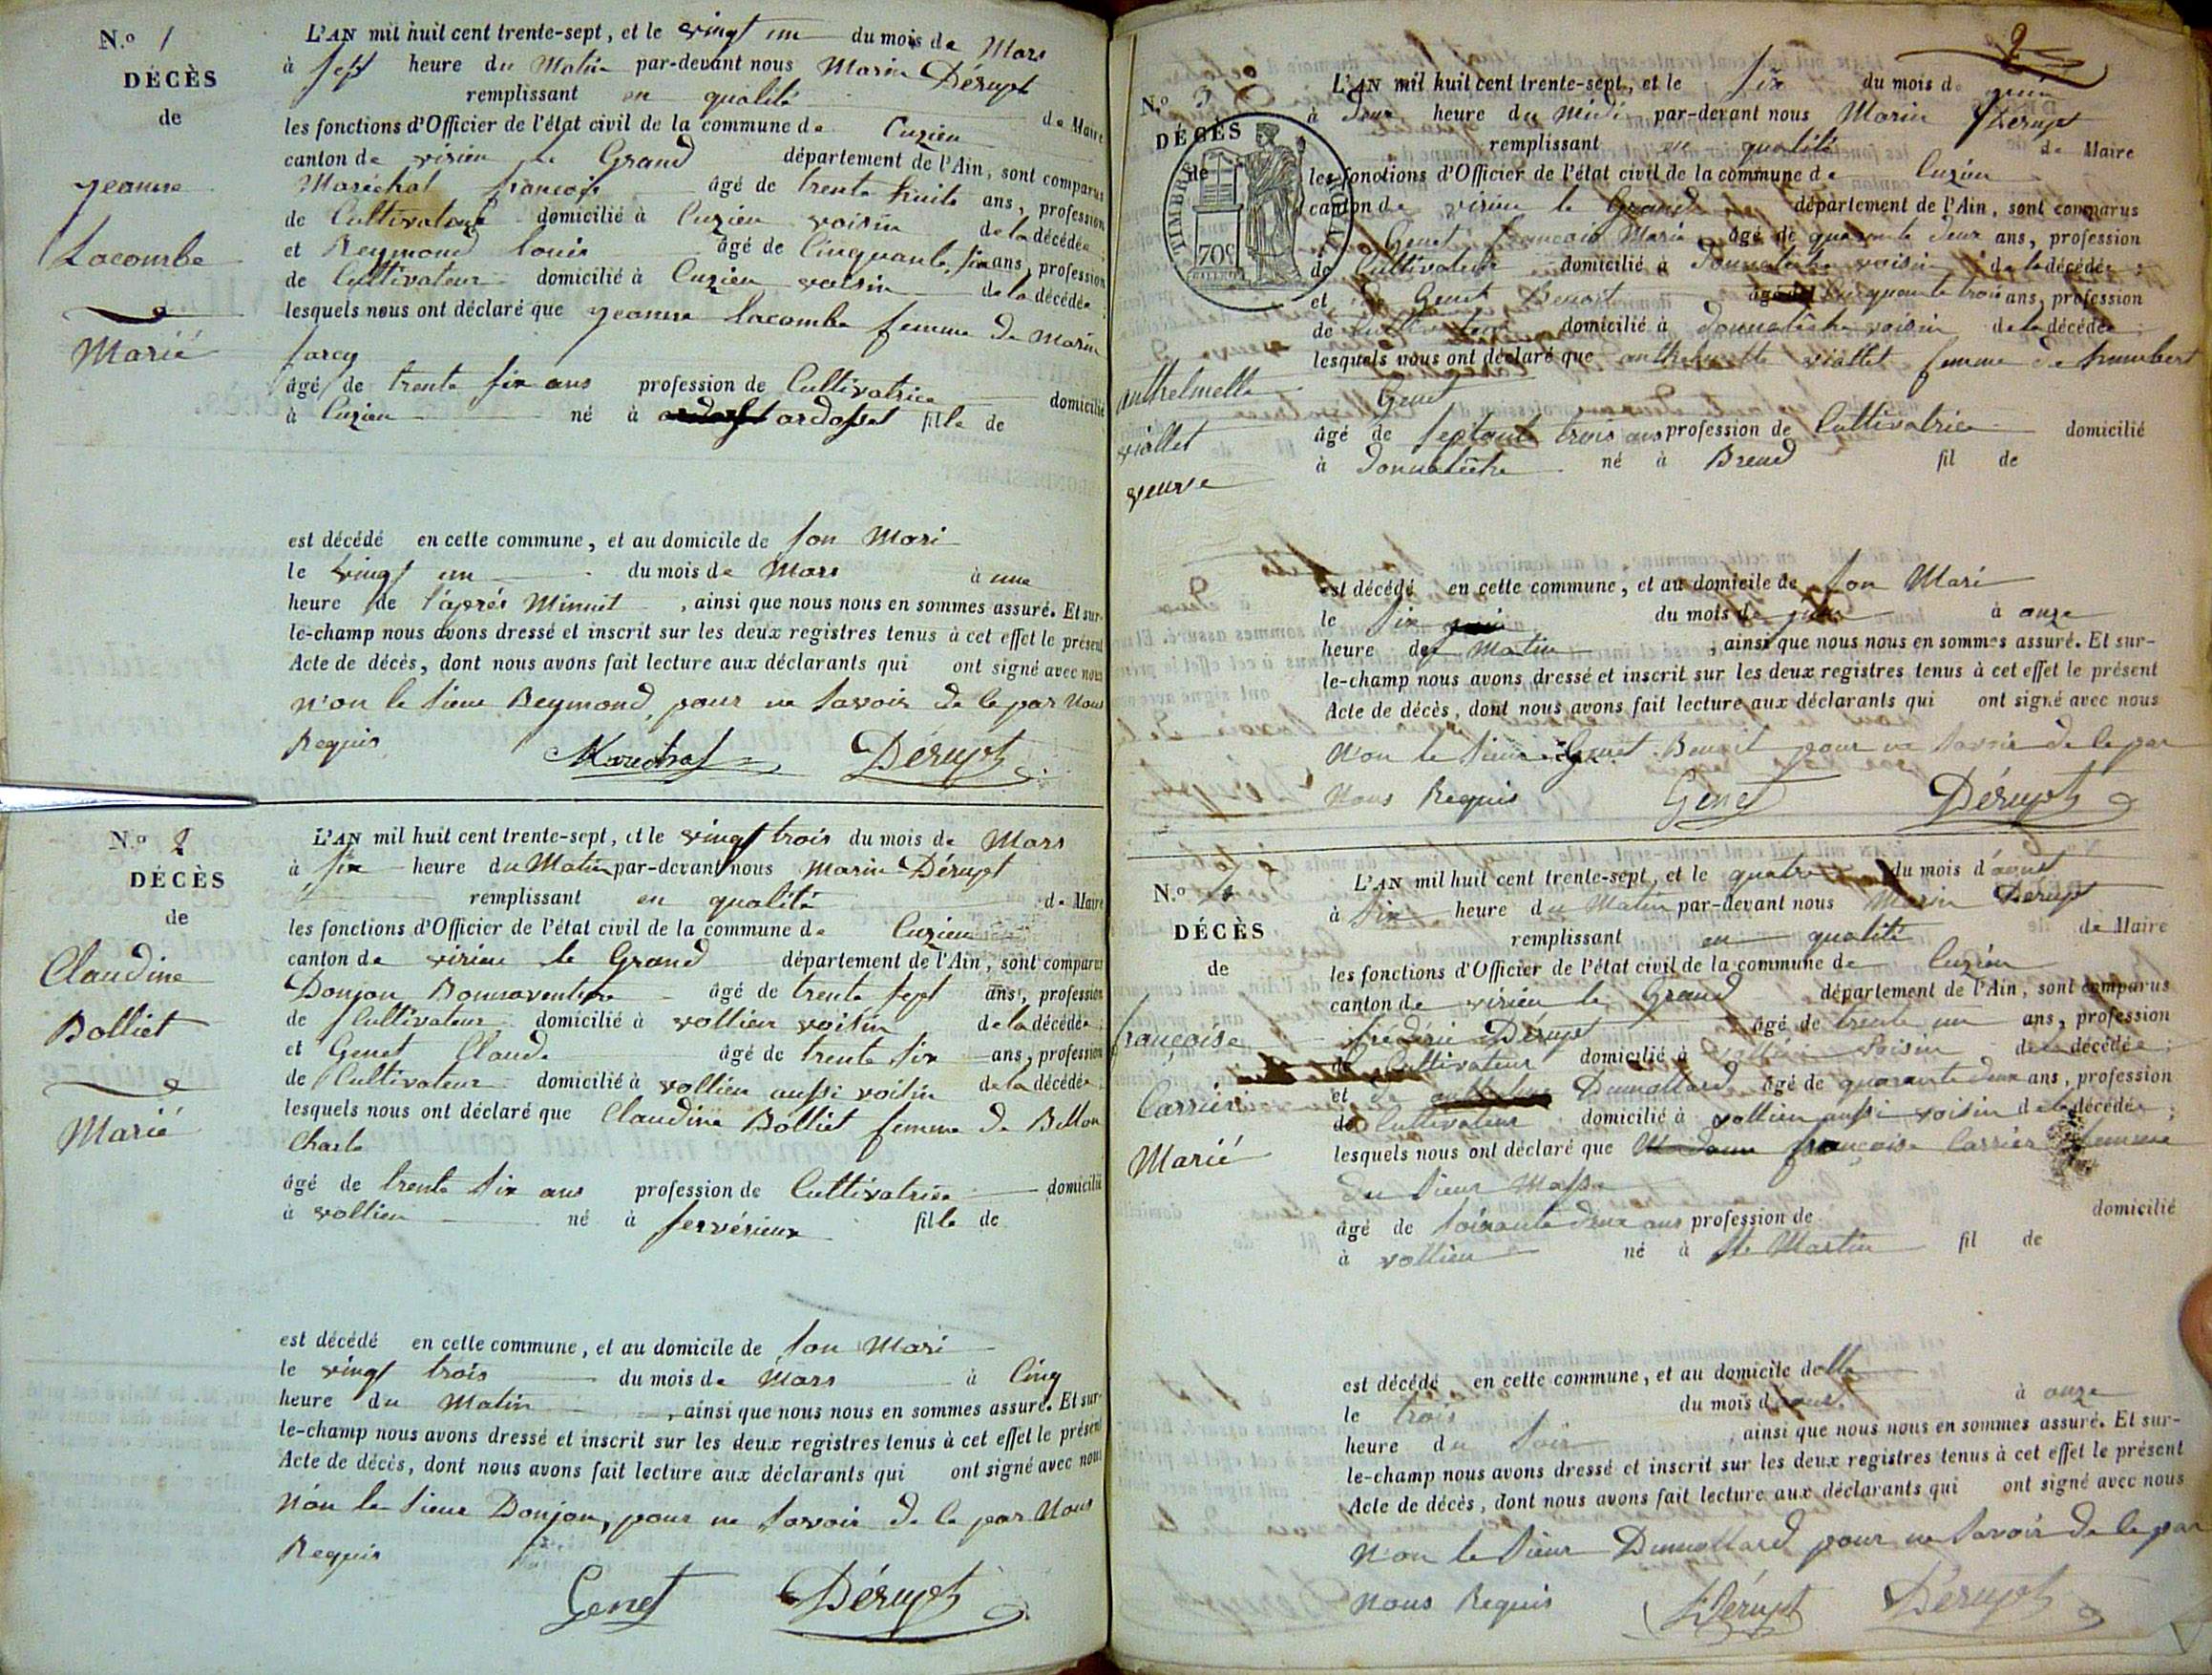 N.o 1
DÉCÈS
de
jeanne
Lacombe
Marié
L'AN mil huit cent trente-sept, et le vingt un du mois de Mars
à sept heure du Matin par-devant nous Marin Dérupt
remplissant en qualité de Maire
les fonctions d'Officier de l'état civil de la commune de Cuzieu
canton de virieu le Grand département de l'Ain, sont comparus
Maréchal francois âgé de trente huite ans, profession
de Cultivateur domicilié à Cuzieu voisin de la décédée;
et Reymond Louis âgé de Cinquante six ans, profession
de Cultivateur domicilié à Cuzieu voisin de la décédée;
lesquels nous ont déclaré que jeanne Lacombe femme de Marin
Jarcy
âgé de trente six ans profession de Cultivatrice domicilié
à Cuzieu né à ardosset fille de
est décédé en cette commune, et au domicile de son Mari
le vingt un du mois de Mars à une
heure de l'après Minuit, ainsi que nous nous en sommes assuré. Et sur-
le-champ nous avons dressé et inscrit sur les deux registres tenus à cet effet le présent
Acte de décès, dont nous avons fait lecture aux déclarants qui ont signé avec nous
n'on le sieur Reymond, pour ne savoir de le par Nous
Requis
Marechal Dérupt
N.o 2
DÉCÈS
de
Claudine
Bolliet
Marié
L'AN mil huit cent trente-sept, et le vingt trois du mois de Mars
à six heure du Matin par-devant nous Marin Dérupt
remplissant en qualité de Maire
les fonctions d'Officier de l'état civil de la commune de Cuzieu
canton de virieu le Grand département de l'Ain, sont comparus
Donjon Bonnaventure âgé de trente sept ans, profession
de Cultivateur domicilié à vollien voisin de la décédée;
et Genet Claude âgé de trente six ans, profession
de Cultivateur domicilié à vollien aussi voisin de la décédée;
lesquels nous ont déclaré que Claudine Bolliet femme de Billon
Charle
âgé de trente six ans profession de Cultivatrice domicilié
à vollien né à servérieux fille de
est décédé en cette commune, et au domicile de son Mari
le vingt trois du mois de Mars à Cinq
heure du Matin, ainsi que nous nous en sommes assuré. Et sur-
le-champ nous avons dressé et inscrit sur les deux registres tenus à cet effet le présent
Acte de décès, dont nous avons fait lecture aux déclarants qui ont signé avec nous
N'on le sieur Donjon, pour ne savoir de le par Nous
Requis
Genet Dérupt
2
N.o 3
DÉCÈS
de
TIMBRE ROYAL
70c
anthelmette
viallet
veuve
L'AN mil huit cent trente-sept, et le six du mois de juin
à deux heure du midi par-devant nous Marin Dérupt
remplissant en qualité de Maire
les fonctions d'Officier de l'état civil de la commune de Cuzieu
canton de virieu le Grand département de l'Ain, sont comparus
Genet francois Marie âgé de quarante deux ans, profession
de Cultivateur domicilié à Donnalèche voisin de la décédée;
et Genet Benoit âgé de Cinquante trois ans, profession
de Cultivateur domicilié à Donnalèche voisin de la décédée;
lesquels nous ont déclaré que anthelmette viallet femme de humbert
Genet
âgé de septante trois ans profession de Cultivatrice domicilié
à Donnalèche né à Brend fil de
est décédé en cette commune, et au domicile de son Mari
le six du mois de juin à onze
heure du Matin, ainsi que nous nous en sommes assuré. Et sur-
le-champ nous avons dressé et inscrit sur les deux registres tenus à cet effet le présent
Acte de décès, dont nous avons fait lecture aux déclarants qui ont signé avec nous
N'on le sieur Genet Benoit pour ne savoir de le par
Nous Requis Genet Dérupt
N.o 4
DÉCÈS
de
françoise
Carrier
Marié
L'AN mil huit cent trente-sept, et le quatre du mois d'aoust
à six heure du Matin par-devant nous Marin Dérupt
remplissant en qualité de Maire
les fonctions d'Officier de l'état civil de la commune de Cuzieu
canton de virieu le Grand département de l'Ain, sont comparus
frédéric Dérupt âgé de trente un ans, profession
de Cultivateur domicilié à vollien voisin de la décédée;
et Dumollard âgé de quarante deux ans, profession
de Cultivateur domicilié à vollien aussi voisin de la décédée;
lesquels nous ont déclaré que Madame françoise Carrier femme
du sieur Masse
âgé de soixante deux ans profession de domicilié
à vollien né à St Martin fil de
est décédé en cette commune, et au domicile delle
le trois du mois d'aoust à onze
heure du soir, ainsi que nous nous en sommes assuré. Et sur-
le-champ nous avons dressé et inscrit sur les deux registres tenus à cet effet le présent
Acte de décès, dont nous avons fait lecture aux déclarants qui ont signé avec nous
N'on le sieur Dumollard pour ne savoir de le par
Nous Requis Dérupt Dérupt